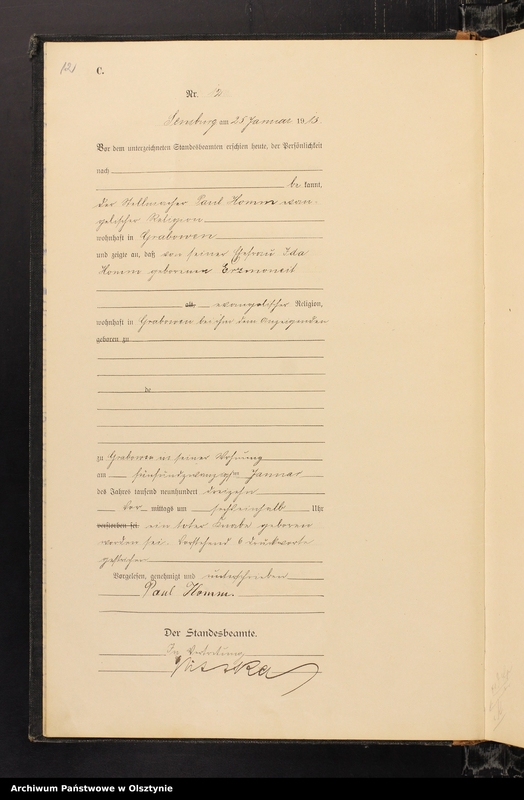 121
C.
Nr. 12
Sensburg am 28 Januar 1913
Vor dem unterzeichneten Standesbeamten erschien heute, der Persönlichkeit
nach
be kannt,
der Stellmacher Paul Homm evan-
gelischer Religion
wohnhaft in Grabowen
und zeigte an, daß von seiner Ehefrau Ida
Homm geborenen
alt, evangelischer Religion,
wohnhaft in Grabowen bei ihm dem Anzeigenden
geboren zu
de
zu Grabowen in seiner Wohnung
am fünfundzwanzigsten Januar
des Jahres tausend neunhundert dreizehn
vor mittags um Uhr
verstorben sei. ein toter Knabe geboren
worden sei. Vorstehend 6 Druckworte
gestrichen
Vorgelesen, genehmigt und unterschrieben
Paul Homm.
Der Standesbeamte.
In Vertretung
Archiwum Państwowe w Olsztynie